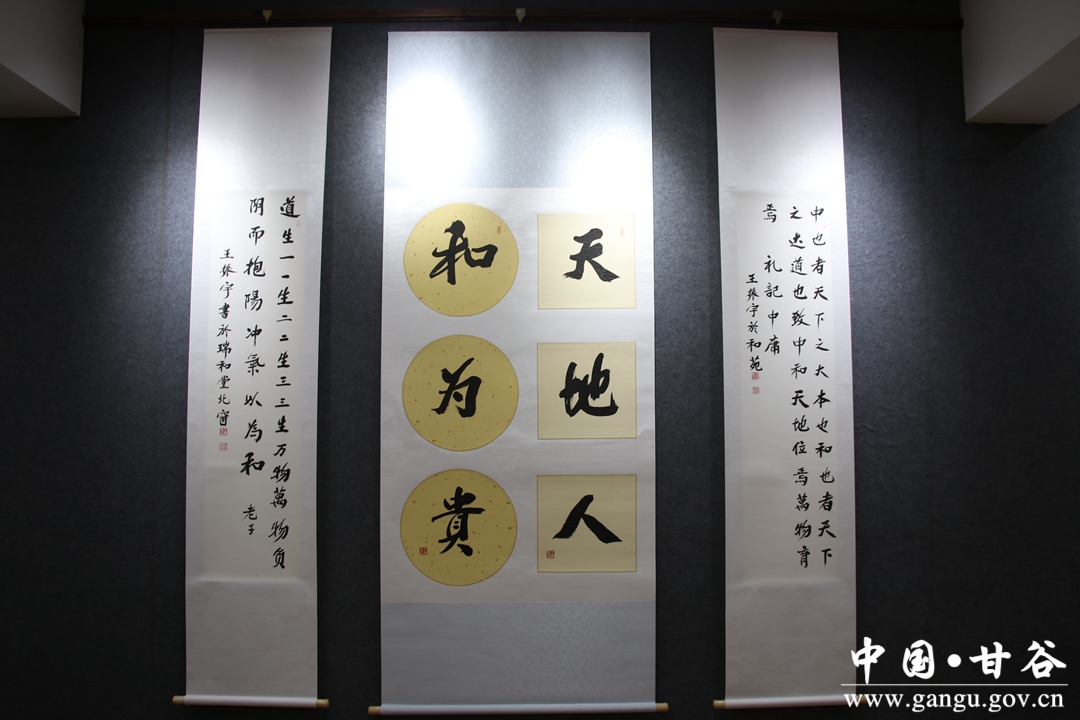 中也者天下之大本也和也者天下
之达道也致中和天地位焉萬物育
焉 礼記中庸
王振宇於和苑
天地人
和为貴
道生一一生二二生三三生万物萬物負
阴而抱陽冲氣以為和 老子
王振宇書於瑞和堂北窗
中国·甘谷
www.gangu.gov.cn